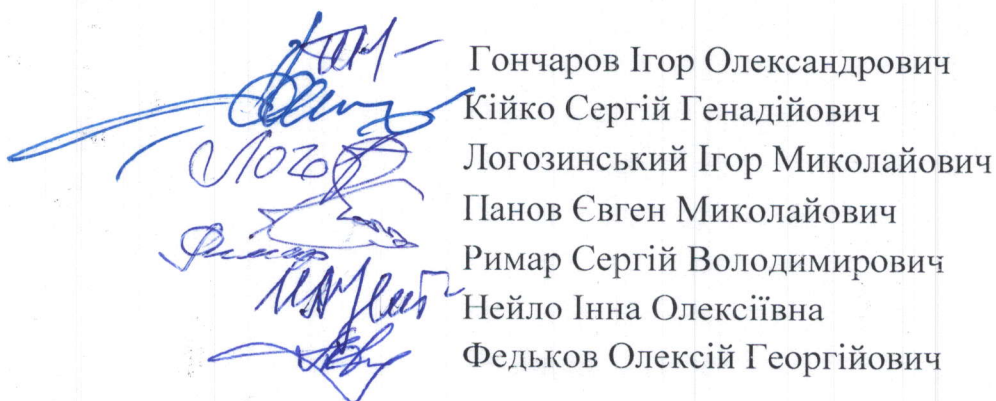 Гончаров Ігор Олександрович
Кійко Сергій Генадійович
Логозинський Ігор Миколайович
Панов Євген Миколайович
Римар Сергій Володимирович
Нейло Інна Олексіївна
Федьков Олексій Георгійович